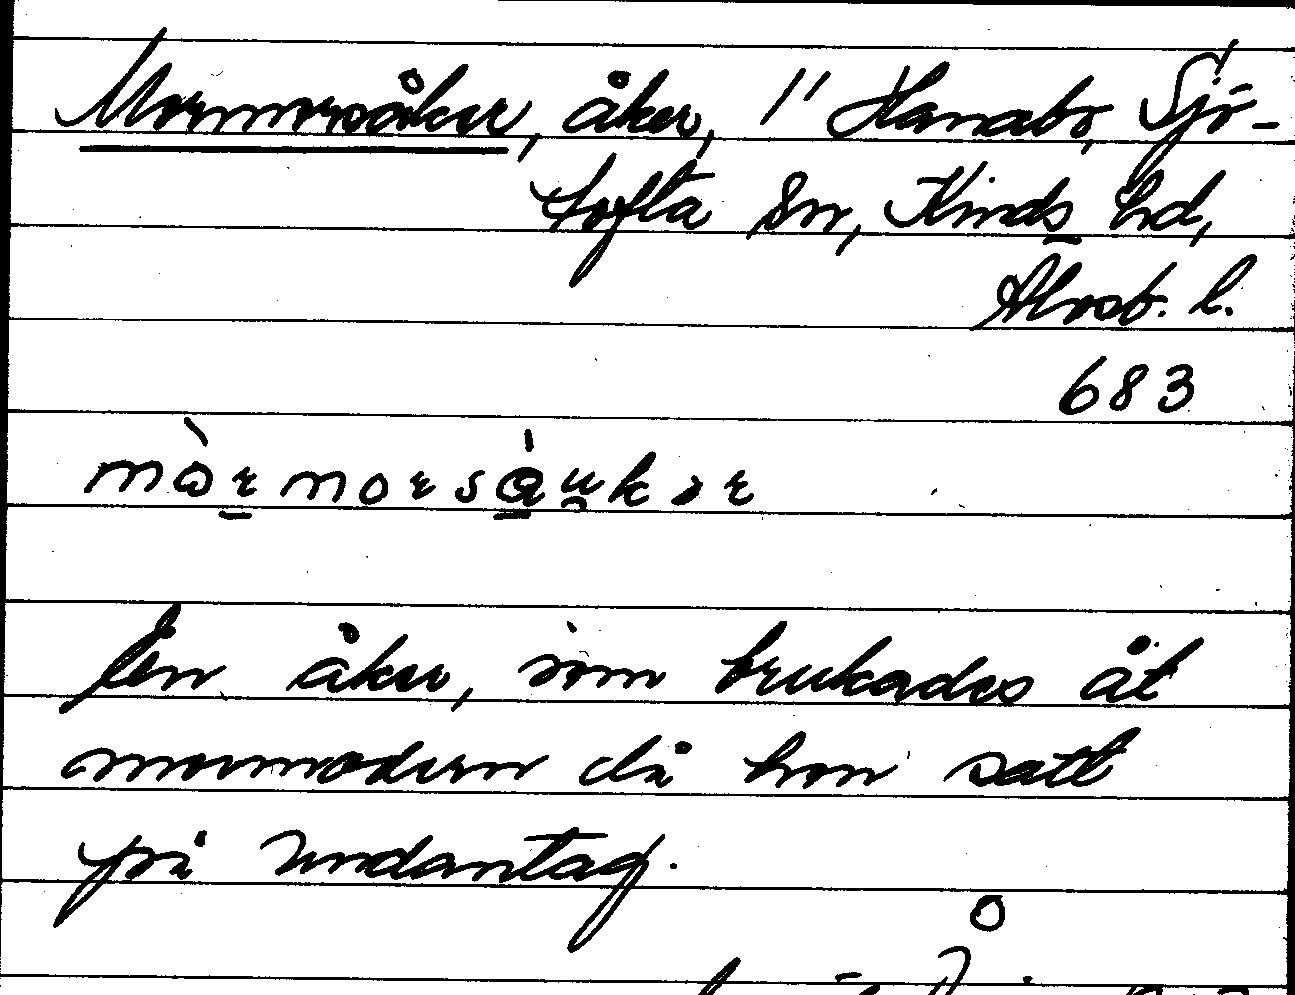 Mormorsåker, åker, 1" Hanabo, Sjö-
tofta sn, Kinds hd,
Älvsb. l.
683
En åker, som brukades åt
mormodern då hon satt
på undantag.